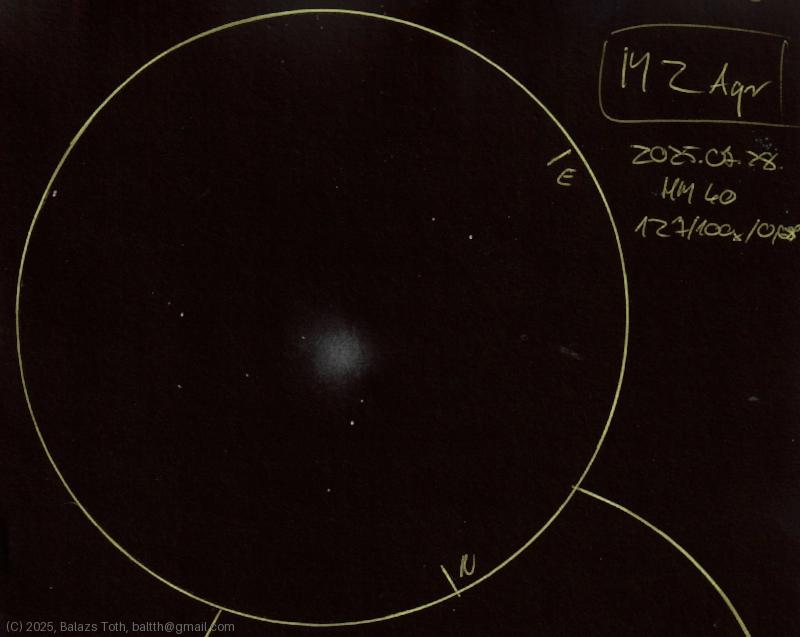 M2 Aqr
E
2025.07.28.
MM 60
127/100x/0,68
N
(C) 2025, Balazs Toth, baltth@gmail.com